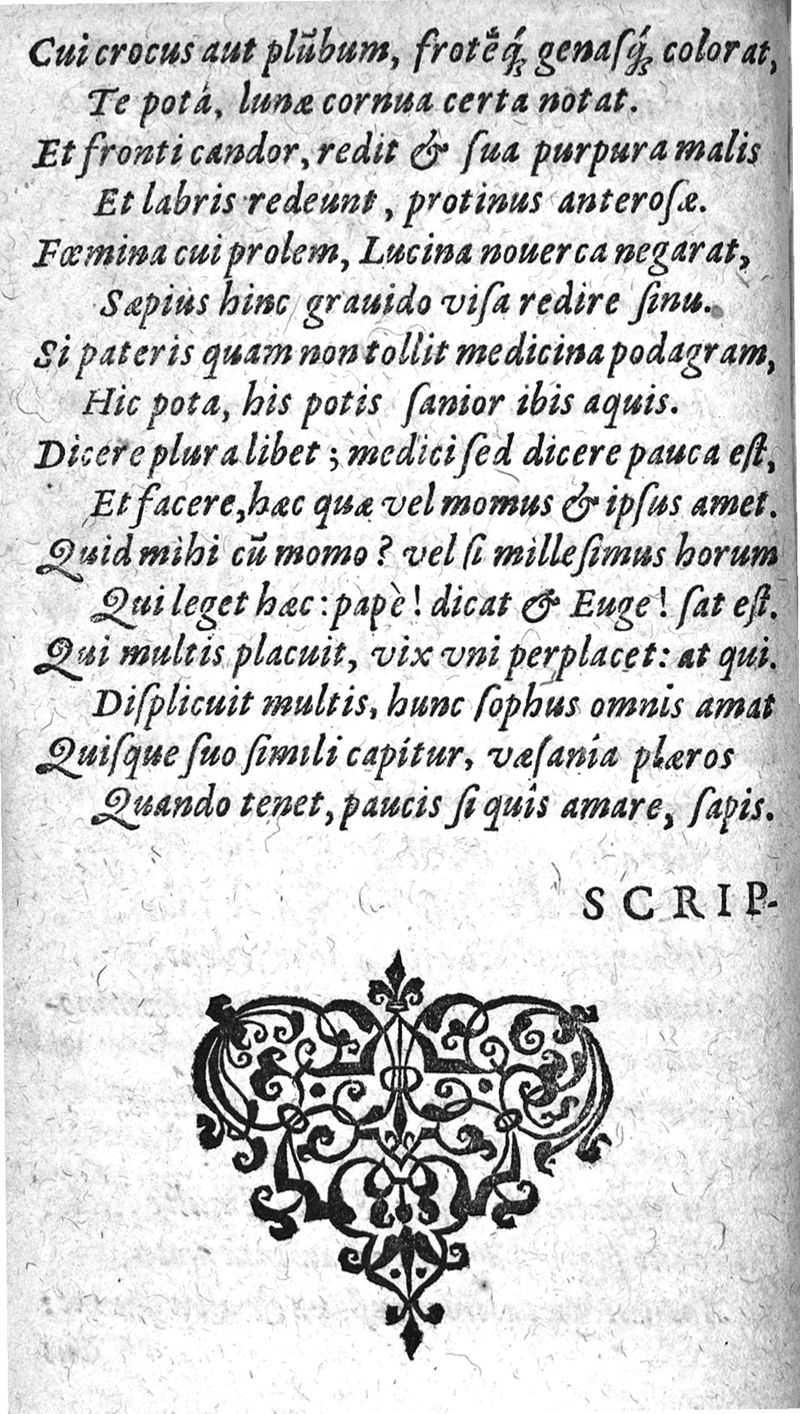 Cui crocus aut plũbum, frotẽq́; genaſq́; colorat,
Te potá, lunæ cornua certa notat.
Et fronti candor, redit & ſua purpura malis
Et labris redeunt, protinus anteroſæ.
Fœmina cui prolem, Lucina nouerca negarat,
Sæpius hinc grauido viſa redire ſinu.
Si pateris quam non tollit medicina podagram,
Hic pota, his potis ſanior ibis aquis.
Dicere plura libet; medici ſed dicere pauca eſt,
Et facere, hæc quæ vel momus & ipſus amet.
Quid mihi cũ momo? vel ſi milleſimus horum
Qui leget hæc: papè! dicat & Euge! ſat eſt.
Qui multis placuit, vix vni perplacet: at qui.
Diſplicuit multis, hunc ſophus omnis amat
Quiſque ſuo ſimili capitur, væſania plæros
Quando tenet, paucis ſi quis amare, ſapis.
SCRIP-